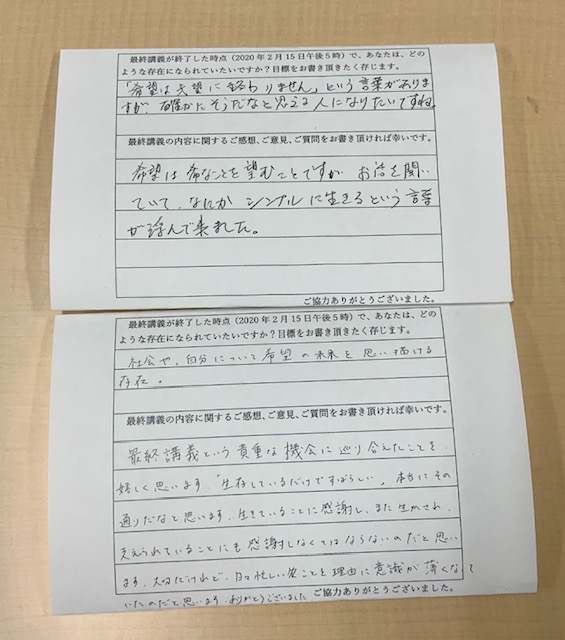 最終講義が終了した時点（2020年2月15日午後5時）で、あなたは、どの
ような存在になられていたいですか？目標をお書き頂きたく存じます。
「希望は失望に終わりません」という言葉がありま
すが、確かにそうだなと思える人になりたいですね。
最終講義の内容に関するご感想、ご意見、ご質問をお書き頂ければ幸いです。
希望は希なことを望むことですが お話を聞い
ていて、なにか シンプルに生きるという言葉
が浮んで来ました。
ご協力ありがとうございました。
最終講義が終了した時点（2020年2月15日午後5時）で、あなたは、どの
ような存在になられていたいですか？目標をお書き頂きたく存じます。
社会や、自分について希望の未来を思い描ける
存在。
最終講義の内容に関するご感想、ご意見、ご質問をお書き頂ければ幸いです。
最終講義という貴重な機会に巡り合えたことを
嬉しく思います。「生存しているだけですばらしい」。本当にその
通りだなと思います。生きていることに感謝し、また生かされ、
支えられていることにも感謝しなくてはならないのだと思い
ます。大切だけれど、日々忙しいことを理由に意識が薄くなって
いたのだと思います。ありがとうございました
ご協力ありがとうございました。